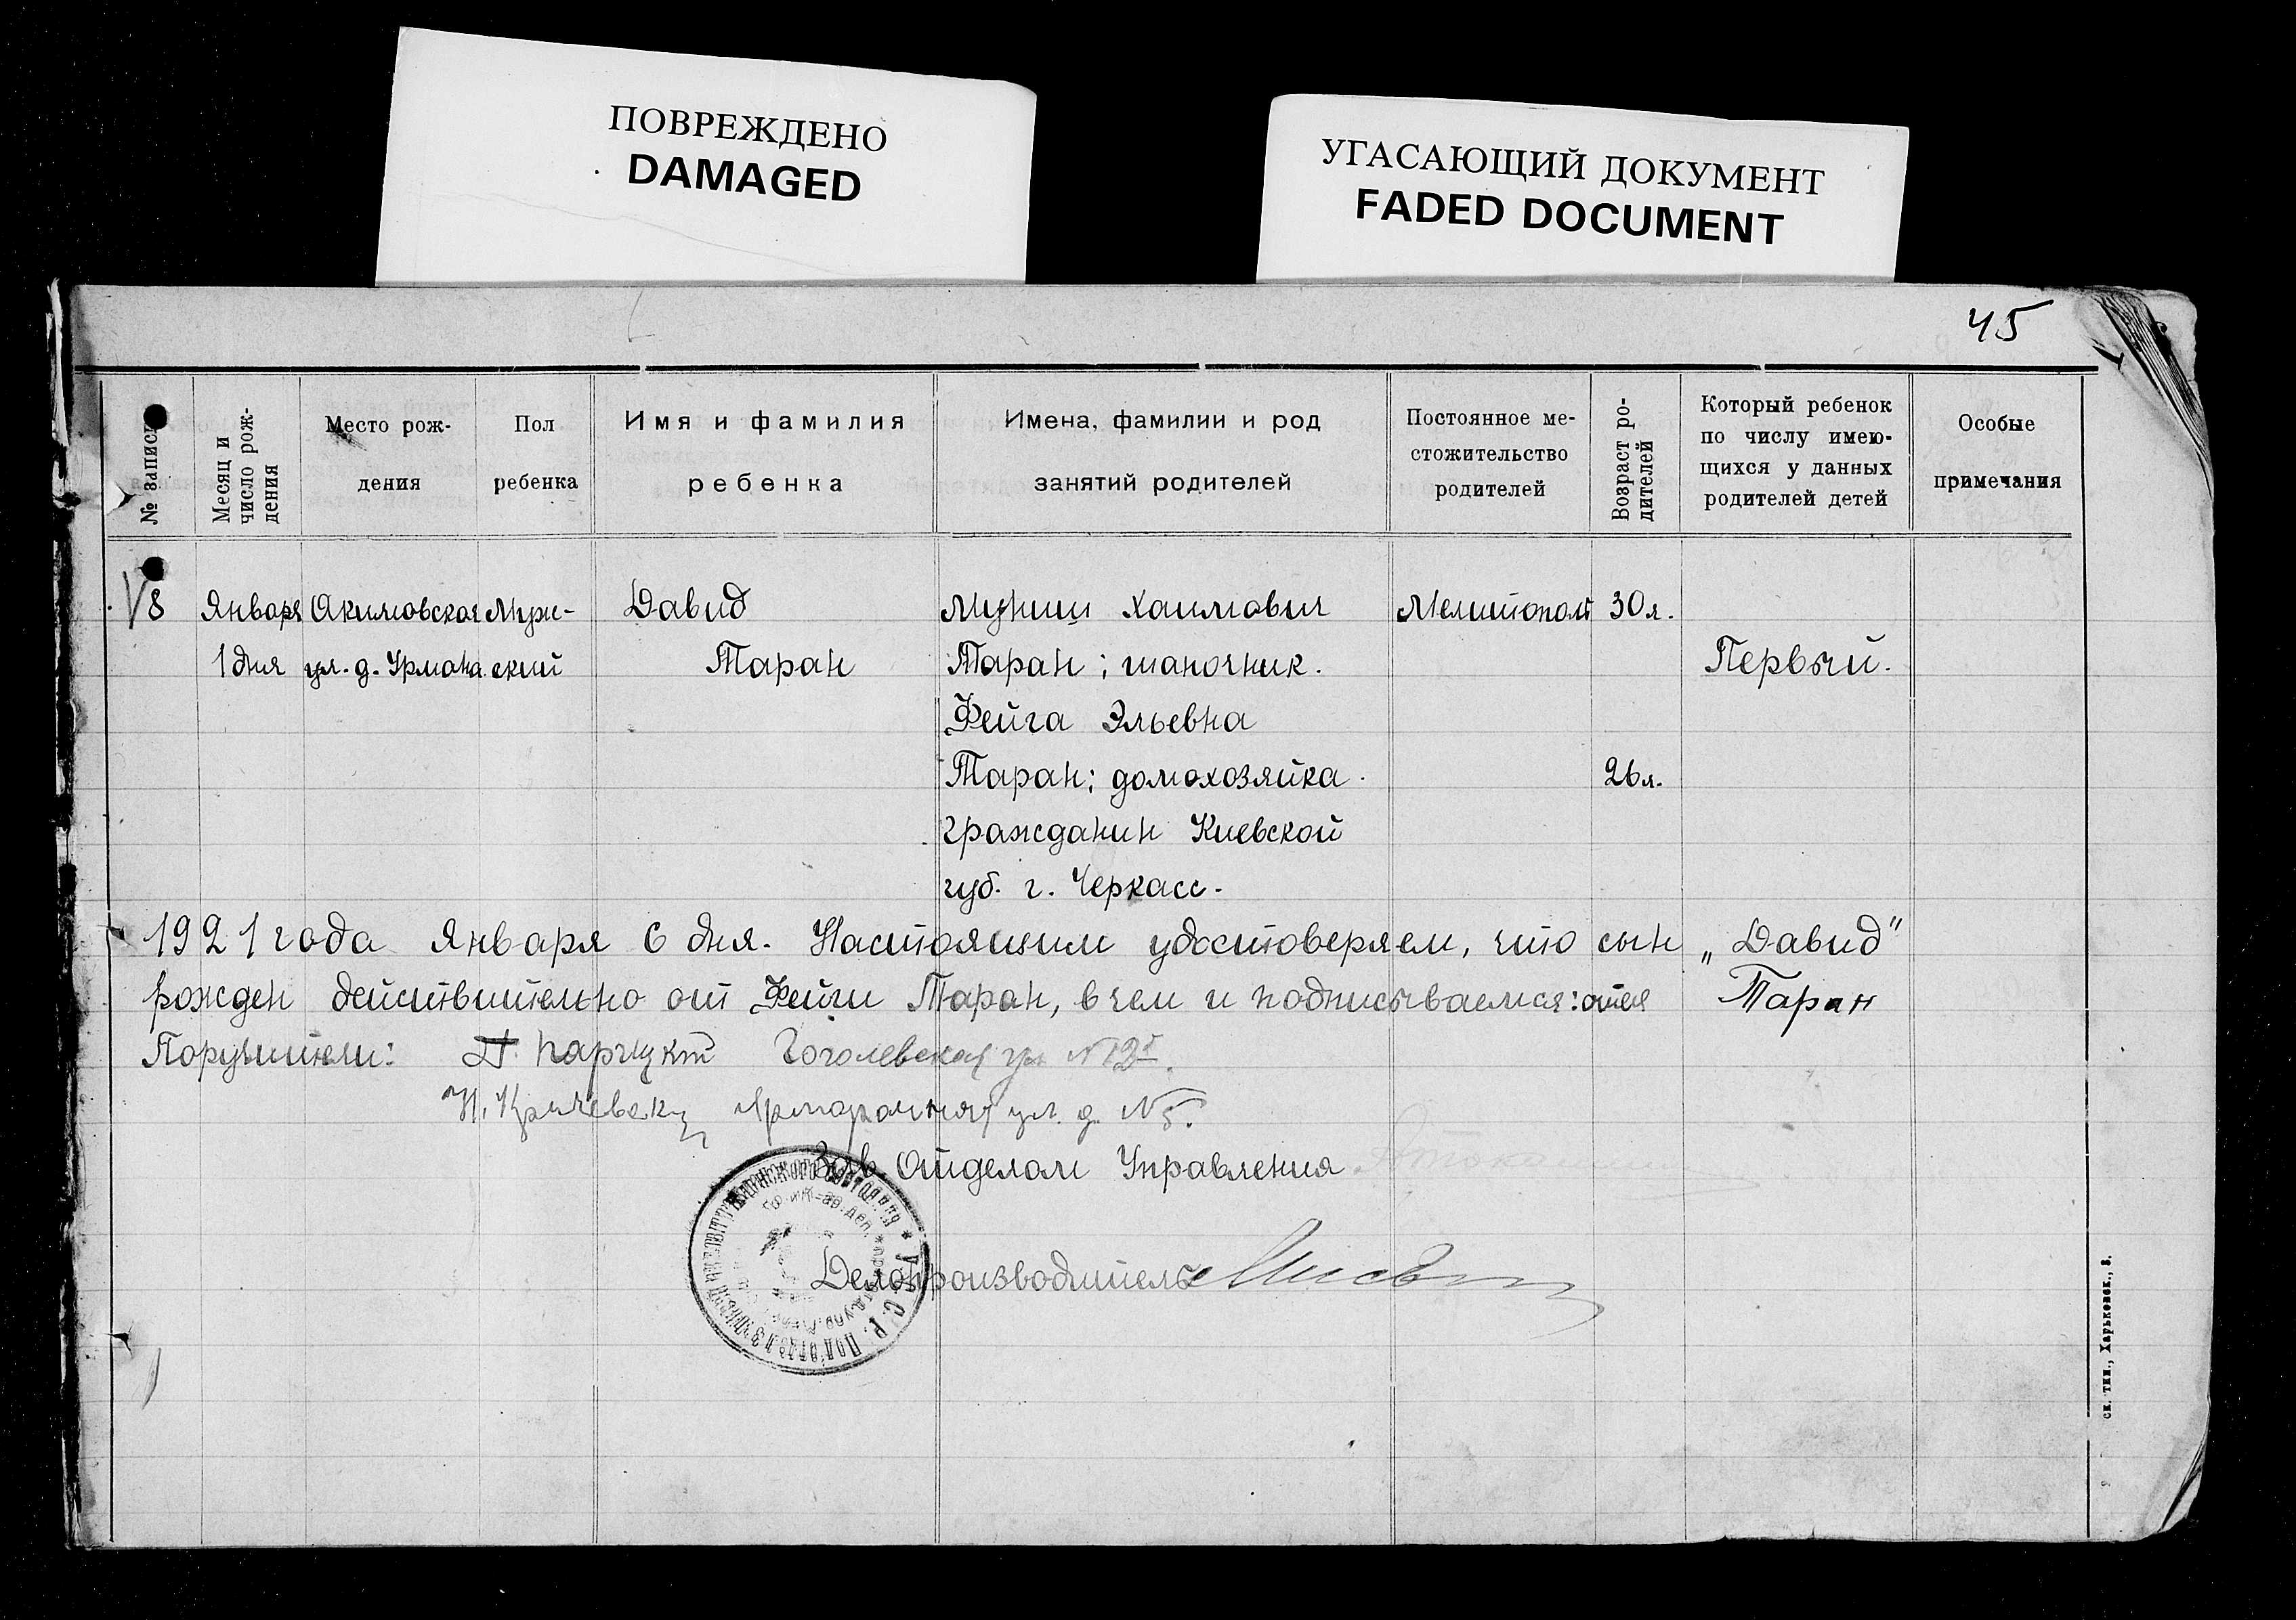 ПОВРЕЖДЕНО
DAMAGED
УГАСАЮЩИЙ ДОКУМЕНТ
FADED DOCUMENT
45
№ записи
Месяц и
число рож-
дения
Место рож-
дения
Пол
ребенка
Имя и фамилия
ребенка
Имена, фамилии и род
занятий родителей
Постоянное ме-
стожительство
родителей
Возраст ро-
дителей
Который ребенок
по числу имею-
щихся у данных
родителей детей
Особые
примечания
8
Января
1 дня
Акимовская
ул. д. Урмана
Муж-
ской
Давид
Таран
Хаимович
Таран; шапочник.
Фейга Эльевна
Таран; домохозяйка.
гражданин Киевской
губ. г. Черкасс.
Мелитополь
30 л.
26 л.
Первый.
1921 года Января 6 дня. Настоящим удостоверяем, что сын „Давид"
рожден действительно от Фейги Таран, в чем и подписываемся: отец Таран
Поручители: Гоголевская ул №
Ярмарочная ул. д. № 5.
Зав Отделом Управления
Делопроизводитель
С. Р. Подотдел З
ск. тип., Харьковск., 8.